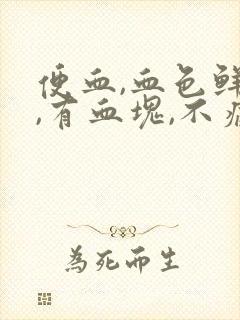 便血,血色鲜
,有血块,不
為死而生